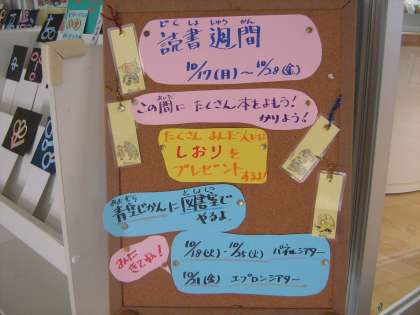 どくしょしゅうかん
読書週間
10/17(月)〜10/28(金)
あいだ
この間に たくさん本をよもう!
かりよう!
たくさん よんだ人には
しおりを
プレゼント
するよ!
に図書室で
やるよ
みんな
きてね!
10/18(火)・10/25(火) パネルシアター
10/21(金) エプロンシアター